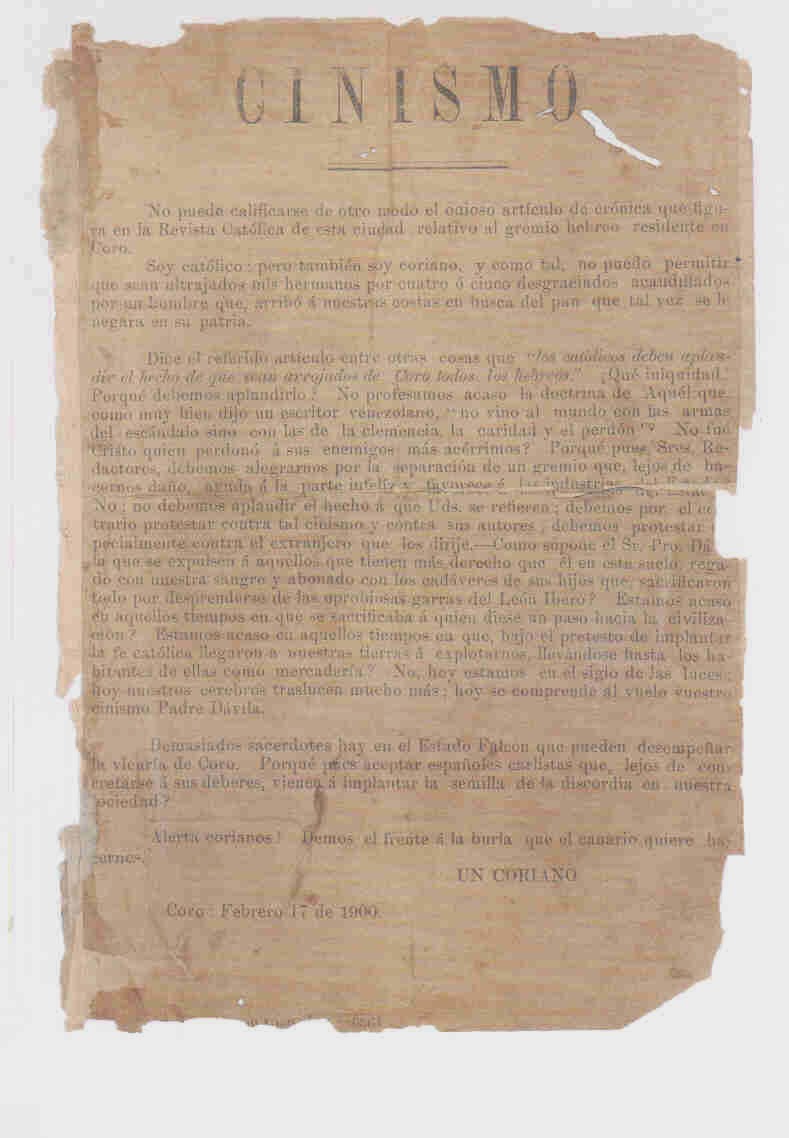 CINISMO
No puede calificarse de otro modo el odioso artículo de crónica que figu-
ra en la Revista Católica de esta ciudad relativo al gremio hebreo residente en
Coro.
Soy católico: pero también soy coriano, y como tal, no puedo permitir
que sean ultrajados mis hermanos por cuatro ó cinco desgraciados acaudillados
por un hombre que, arribó á nuestras costas en busca del pan que tal vez se le
negara en su patria.
Dice el referido artículo entre otras cosas que "los católicos deben aplau-
dir el hecho de que sean arrojados de Coro todos los hebreos." ¡Qué iniquidad!
Porqué debemos aplaudirlo? No profesamos acaso la doctrina de Aquél que,
como muy bien dijo un escritor venezolano, "no vino al mundo con las armas
del escándalo sino con las de la clemencia, la caridad y el perdón"? No fué
Cristo quien perdonó á sus enemigos más acérrimos? Porqué pues, Sres. Re-
dactores, debemos alegrarnos por la separación de un gremio que, lejos de ha-
cernos daño, ayuda á la parte infeliz y favorece á las industrias del Estado?
No; no debemos aplaudir el hecho á que Uds. se refieren; debemos por el co
trario protestar contra tal cinismo y contra sus autores; debemos protestar
pecialmente contra el extranjero que los dirije.—Como supone el Sr. Pro. Dá
la que se expulsen á aquellos que tienen más derecho que él en este suelo, rega-
do con nuestra sangre y abonado con los cadáveres de sus hijos que, sacrificaron
todo por desprenderse de las oprobiosas garras del León Ibero? Estamos acaso
en aquellos tiempos en que se sacrificaba á quien diese un paso hacia la civiliza-
ción? Estamos acaso en aquellos tiempos en que, bajo el pretesto de implantar
la fe católica llegaron a nuestras tierras á explotarnos, llevándose hasta los ha-
bitantes de ellas como mercadería? No, hoy estamos en el siglo de las luces;
hoy nuestros cerebros traslucen mucho más; hoy se comprende al vuelo vuestro
cinismo Padre Dávila.
Demasiados sacerdotes hay en el Estado Falcon que pueden desempeñar
la vicaría de Coro. Porqué pues aceptar españoles carlistas que, lejos de con-
cretarse á sus deberes, vienen á implantar la semilla de la discordia en nuestra
sociedad?
Alerta corianos! Demos el frente á la burla que el canario quiere ha-
cernos.
UN CORIANO
Coro: Febrero 17 de 1900.